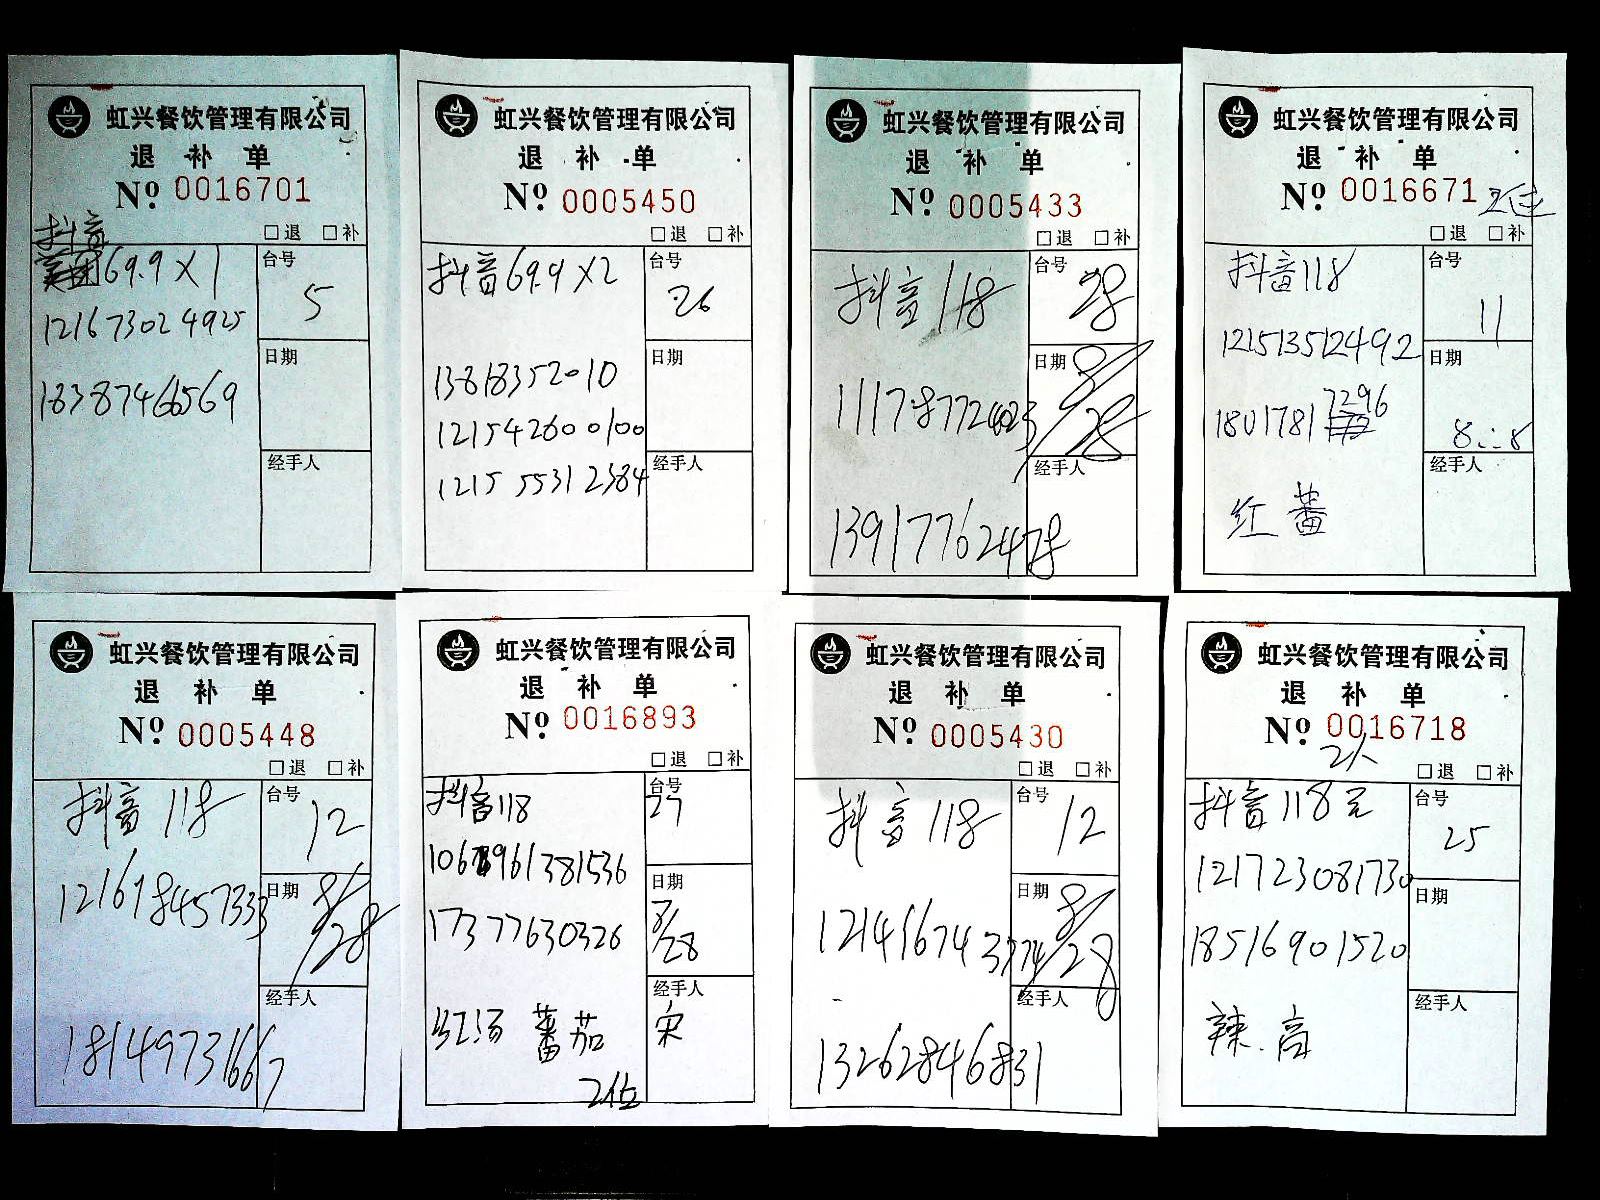 虹兴餐饮管理有限公司
退补单
Nº 0016701
□退 □补
抖音
69.9×1
121673024925
18387466569
台号
5
日期
经手人
虹兴餐饮管理有限公司
退补单
Nº 0005450
□退 □补
抖音69.9×2
13818352010
121542600100
121555312384
台号
26
日期
经手人
虹兴餐饮管理有限公司
退补单
Nº 0005433
□退 □补
抖音118
111787724023
13917762478
台号
28
日期
8/28
经手人
虹兴餐饮管理有限公司
退补单
Nº 0016671
2位
□退 □补
抖音118
121513512492
18017817296
红 蕃
台号
11
日期
8.28
经手人
虹兴餐饮管理有限公司
退补单
Nº 0005448
□退 □补
抖音118
121618457333
18149731667
台号
12
日期
8/28
经手人
虹兴餐饮管理有限公司
退补单
Nº 0016893
□退 □补
抖音118
17377630326
红汤 蕃茄
2位
台号
27
日期
8/28
经手人
宋
虹兴餐饮管理有限公司
退补单
Nº 0005430
□退 □补
抖音118
121416743774
13262846831
台号
12
日期
8/28
经手人
虹兴餐饮管理有限公司
退补单
Nº 0016718
2人
□退 □补
抖音118元
121723081730
18516901520
辣.高
台号
25
日期
经手人